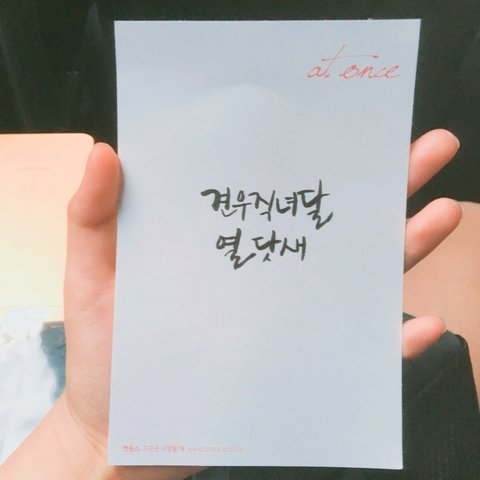 at once
견우직녀달
열닷새
앳원스, 지금은 사랑할 때 www.atonce.co.kr